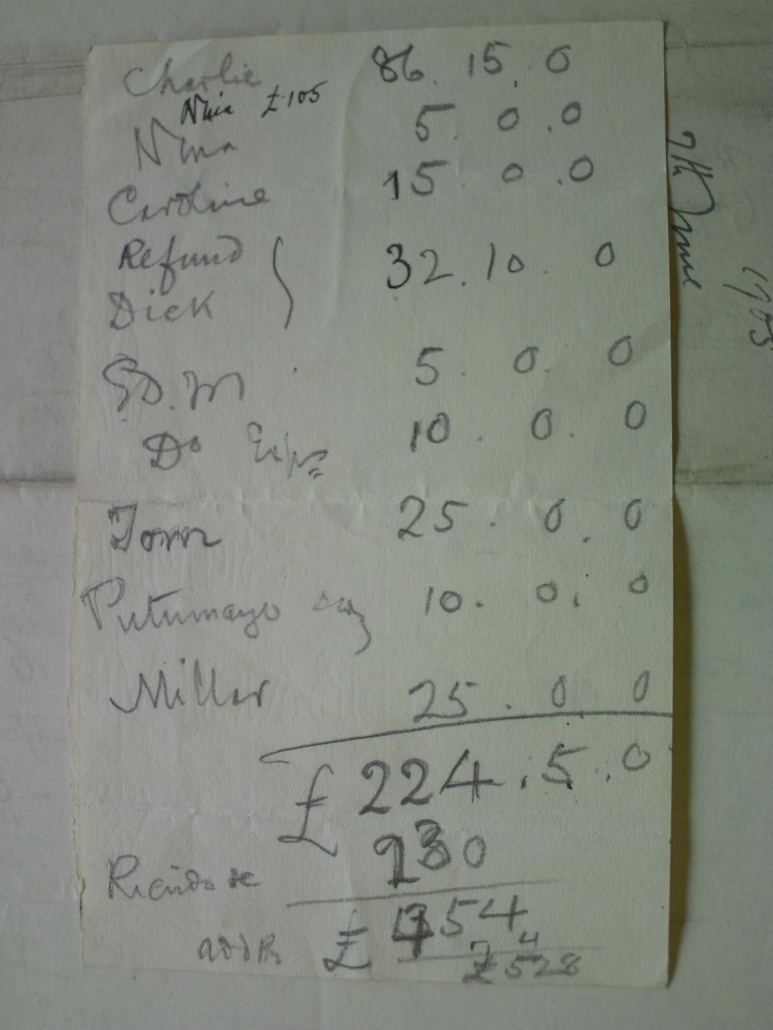 Charlie 86. 15. 0
Nina £105
Nina 5. 0. 0
Caroline 15. 0. 0
Refund
Dick 32. 10. 0
5. 0. 0
Do Exps 10. 0. 0
Tom 25. 0. 0
Putumayo 10. 0. 0
Millar 25. 0. 0
£ 224. 5. 0
230
£ 454
£ 528
7th June